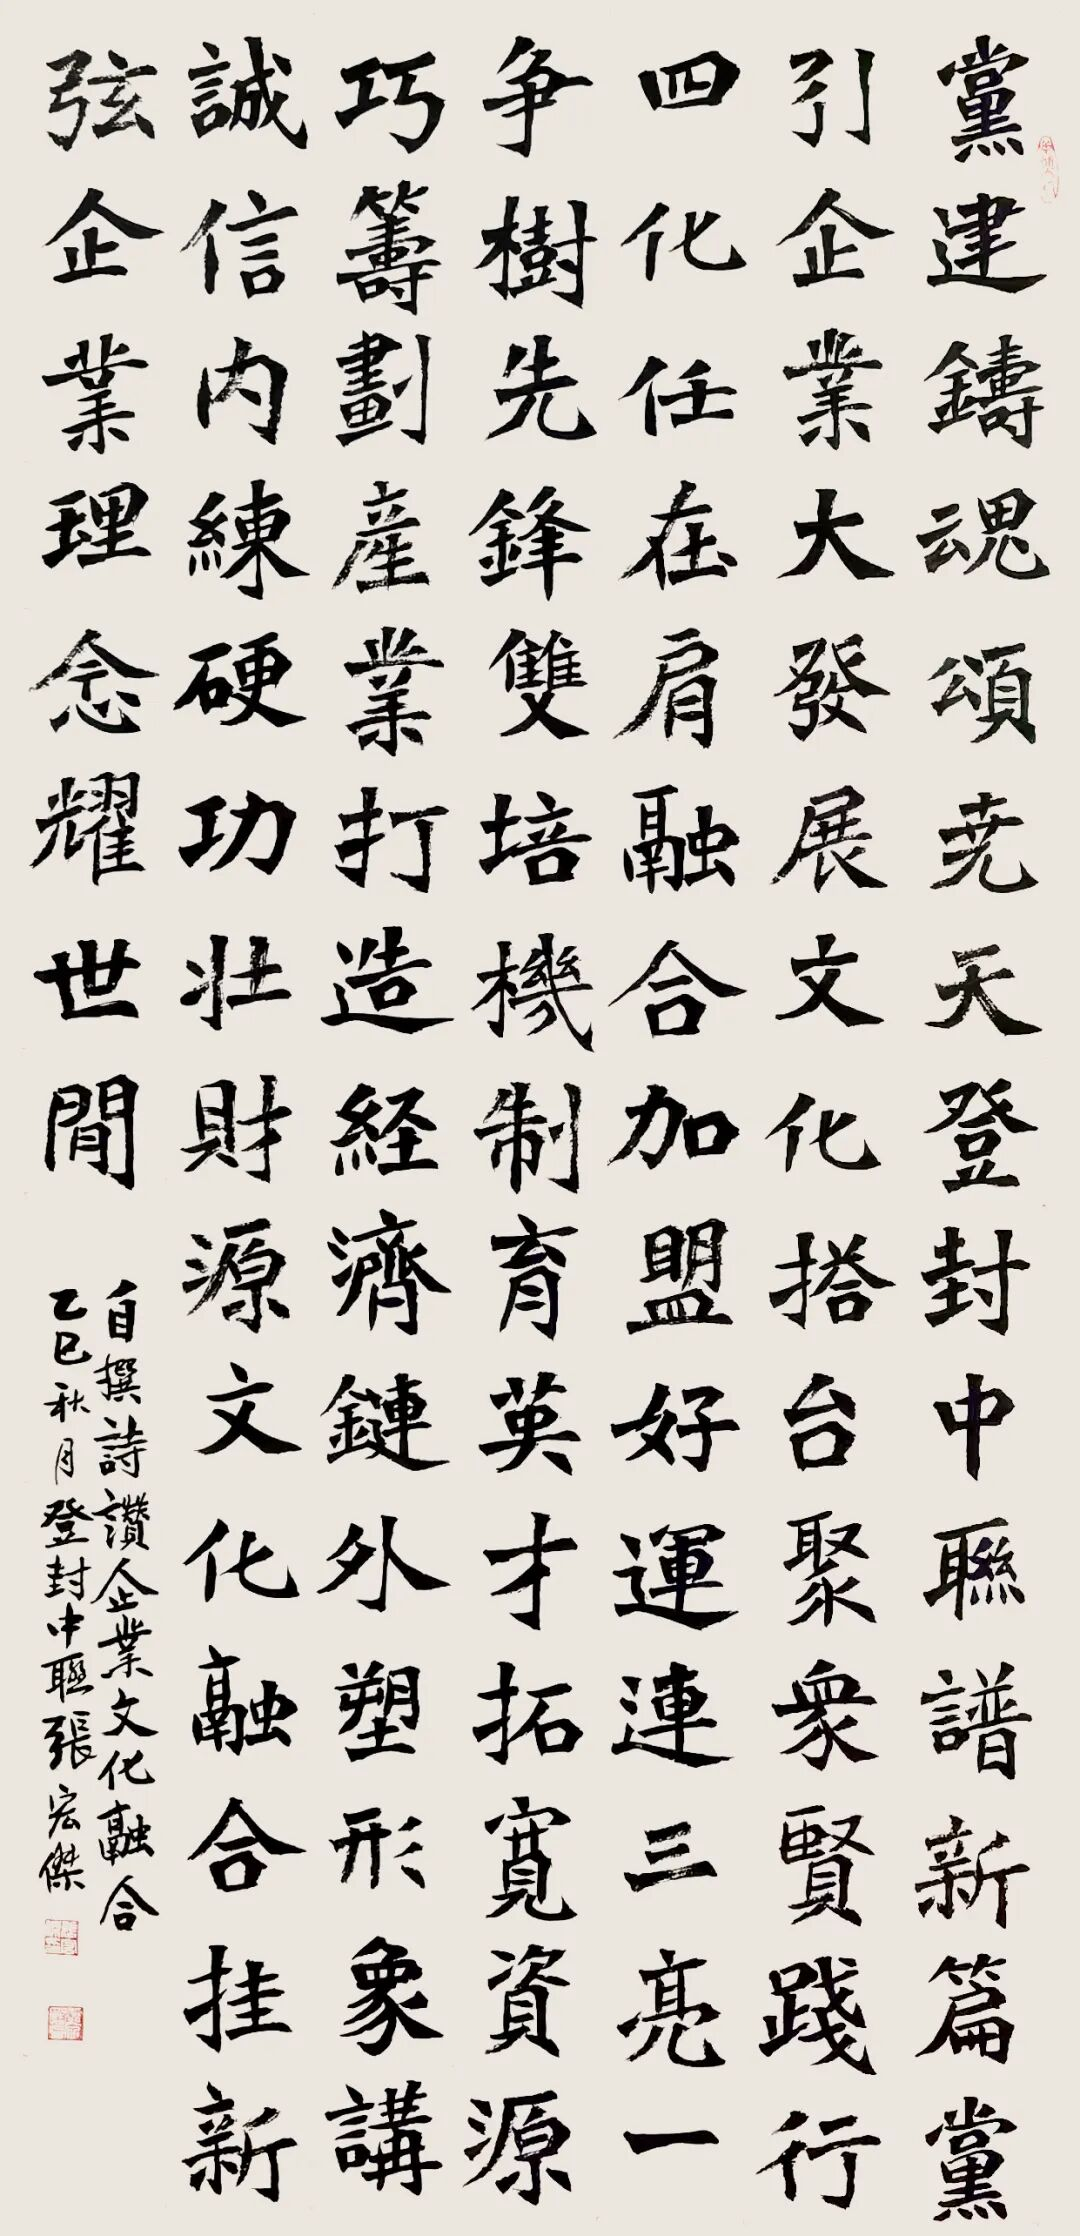 黨建鑄魂頌尭天登封中聯譜新篇黨
引企業大發展文化搭台聚衆賢踐行
四化任在肩融合加盟好運連三亮一
争樹先鋒雙培機制育英才拓寬資源
巧籌劃產業打造経濟鏈外塑形象講
誠信内練硬功壮財源文化融合挂新
弦企業理念耀世間
自撰詩讚企業文化融合
乙巳秋月登封中聯張宏傑